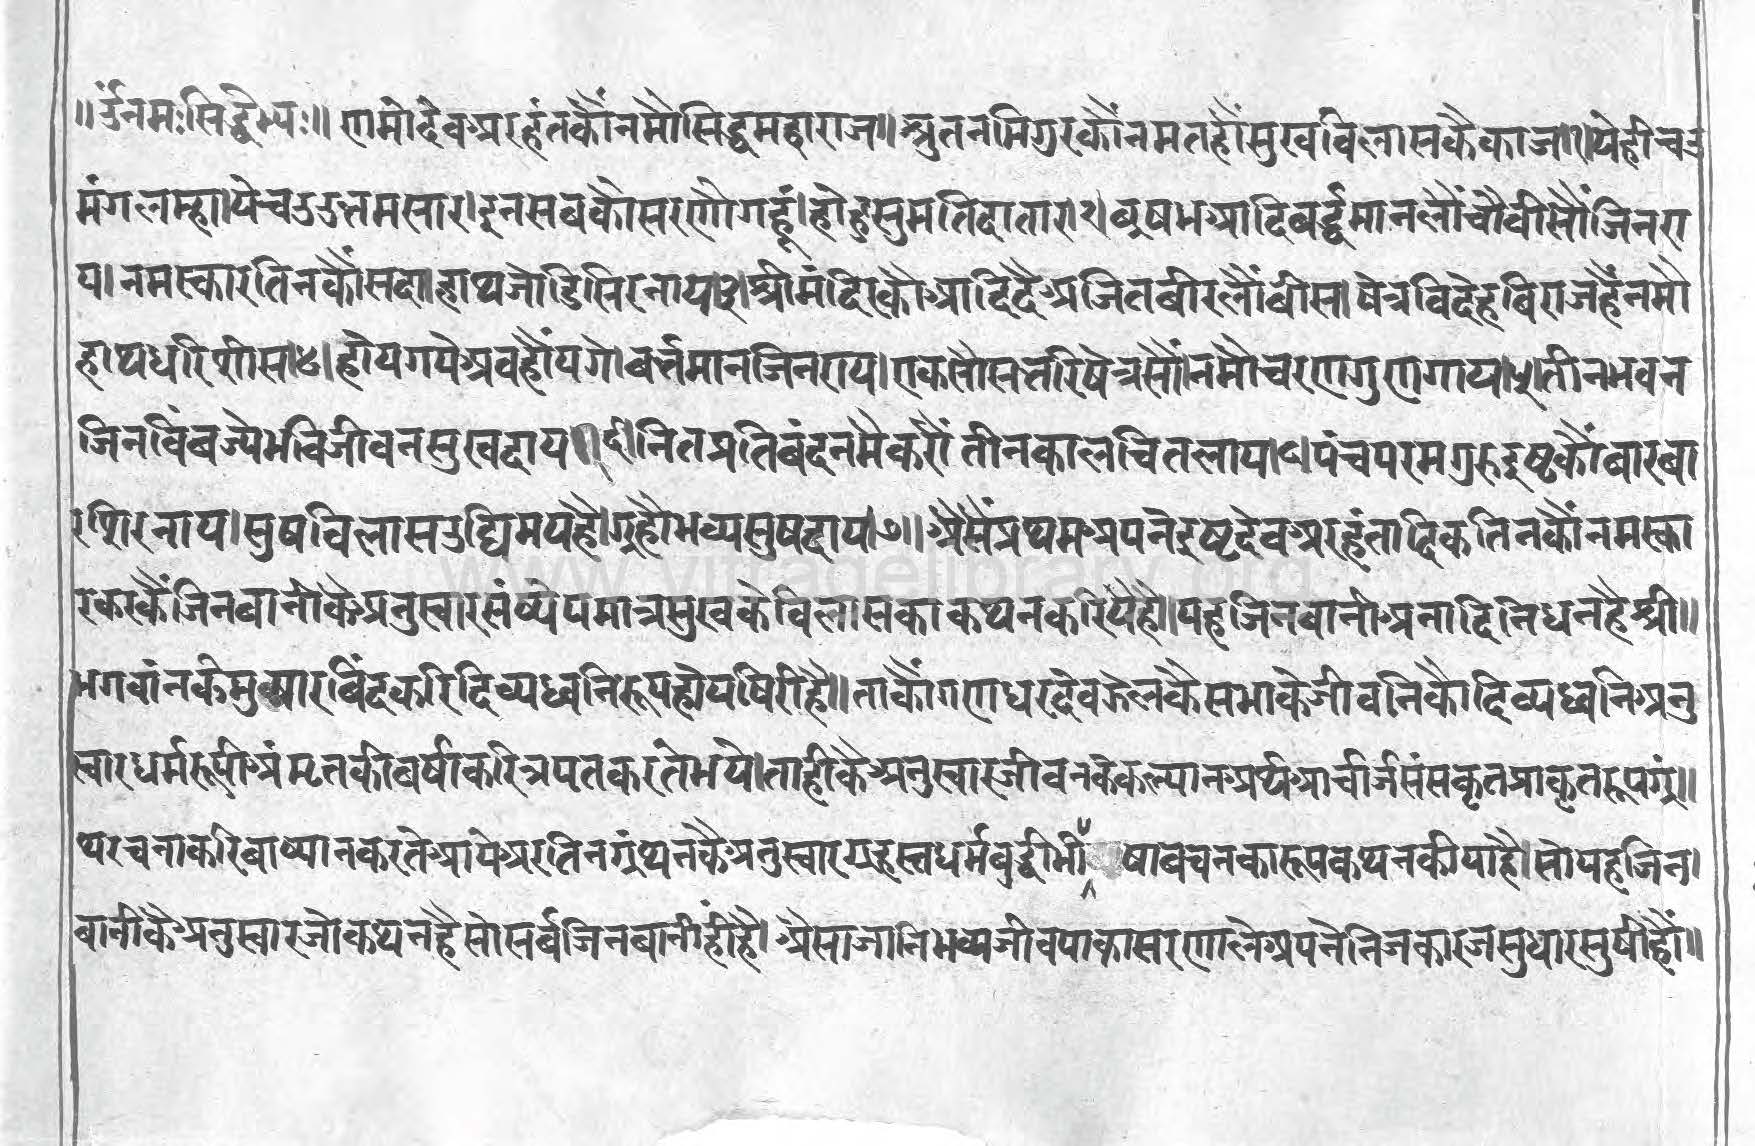 ॥ॐनमःसिद्धेभ्यः॥ णमोदेवअरहंतकौंनमौसिद्धमहाराज॥ श्रुतनमिगुरकौंनमतहौंसुखविलासकैकाज।१।येहीचउ
मंगलम्हा।येचउउत्तमसार।इनसबकौसरणौगहूं।होहुसुमतिदातार।२।वृषभआदिबर्द्धमानलौंचौवीसौंजिनरा
य।नमस्कारतिनकौंसदा।हाथजोडिसिरनाय।३।श्रीमंदिरकौआदिदैअजितबीरलौंबीस।षेत्रविदेहविराजहैंनमौ
हाथधरिशीस।४।हौयगयेअवहौंयगे।बर्त्तमानजिनराय।एकसौसत्तरिषेत्रसौं।नमौचरणगुणगाय।५।तीनभवन
जिनविंबज्येभविजीवनसुखदाय॥ नितप्रतिबंदनमैकरौं तीनकालचितलाय।६।पंचपरमगुरुइष्टकौंबारबा
रशिरनाय।सुषविलासउद्यिमयहै।गृहौभव्यसुषदाय।७॥ अैसैंप्रथमअपनेइष्टदेवअरहंतादिकतिनकौंनमस्का
रकरकैंजिनबानीकैअनुस्वारसंष्येपमात्रसुखकेविलासकाकथनकरियेहै।यहजिनबानीअनादिनिधनहैश्री॥
भगवांनकेमुखारविंदकरिदिव्यध्वनिरूपहोयषिरीहै॥ताकौंगणधरदेवझेलकैसभाकेजीवनिकौदिव्यध्वनिअनु
स्वारधर्मरूपीअंमृतकीबर्षाकरित्रपतकरतेभये।ताहीकैअनुस्वारजीवनकेकल्यानअर्थआचार्जसंसकृतप्राकृतरूपगृं॥
थरचनाकरिबाष्यानकरतेआयेअरतिनगृंथनकैअनुस्वारग्रहस्तधर्मबुद्धीभी षाबचनकारूपकथनकीयाहै।सोयहजिन।
बानीकैअनुस्वारजोकथनहैसोसर्वजिनबानीहीहै।अैसाजानिभव्यजीवयाकासरणालेअपनेनिजकारजसुधारसुषीहौं॥
www.vitragelibrary.org